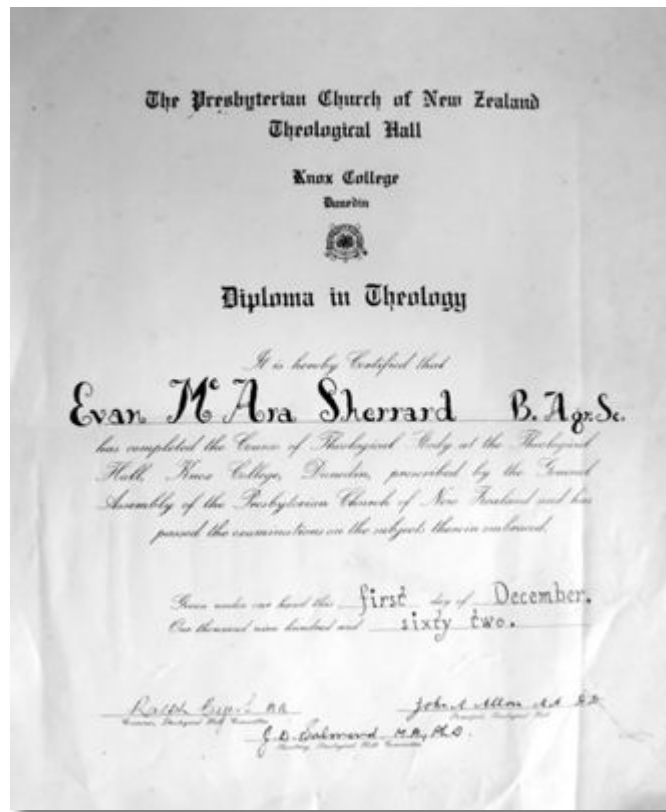 The Presbyterian Church of New Zealand
Theological Hall
Knox College
Dunedin
Diploma in Theology
It is hereby Certified that
Evan Mc Ara Sherrard B. Agr. Sc.
has completed the Course of Theological Study at the Theological
Hall, Knox College, Dunedin, prescribed by the General
Assembly of the Presbyterian Church of New Zealand and has
passed the examinations on the subjects therein embraced.
Given under our hand this first day of December.
One thousand nine hundred and sixty two.
Ralph
John Allan M.A. D.D.
Convener, Theological Hall Committee
Principal, Theological Hall
J. D. Salmond M.A., Ph.D.
Theological Hall Committee